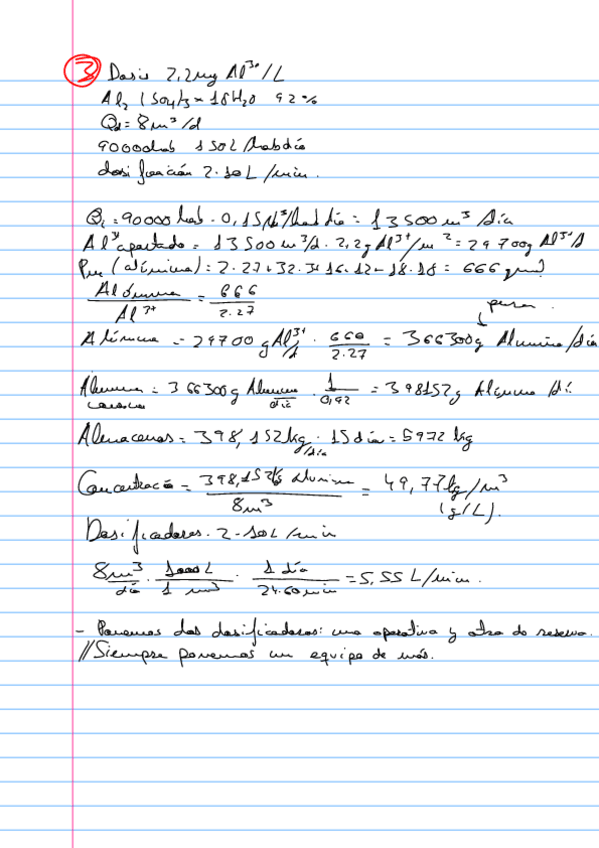 3 Dosis 2,2mg Al³⁺/L
Al₂(SO₄)₃ × 18H₂O 92%
Qd = 8m³/d
90000hab 150L/hab día
dosificación 2-10L/min.
Q₁ = 90000 hab · 0,15 m³/hab día = 13500 m³/día
Al³⁺ aportado = 13500 m³/d · 2,2g Al³⁺/m³ = 29700g Al³⁺/d
Pm (alúmina) = 2·27+32·3+16·12+18·18 = 666 g/mol
Alúmina / Al³⁺ = 666 / 2·27
pura.
Alúmina = 29700 g Al³⁺/d · 666 / 2·27 = 366300g Alumina/día
Alúmina = 366300g Alumina/día · 1/0,92 = 398152g Alúmina/dí.
comercial
Almacenas = 398,152kg/día · 15día = 5972 kg
Concentració = 398,152kg alumina / 8m³ = 49,77kg/m³
(g/L).
Dosificadoras. 2-10L/min
8m³/día · 1000L/1m³ · 1 día/24·60min = 5,55 L/min.
- Ponemos dos dosificadoras: una operativa y otra de reserva.
//Siempre ponemos un equipo de más.